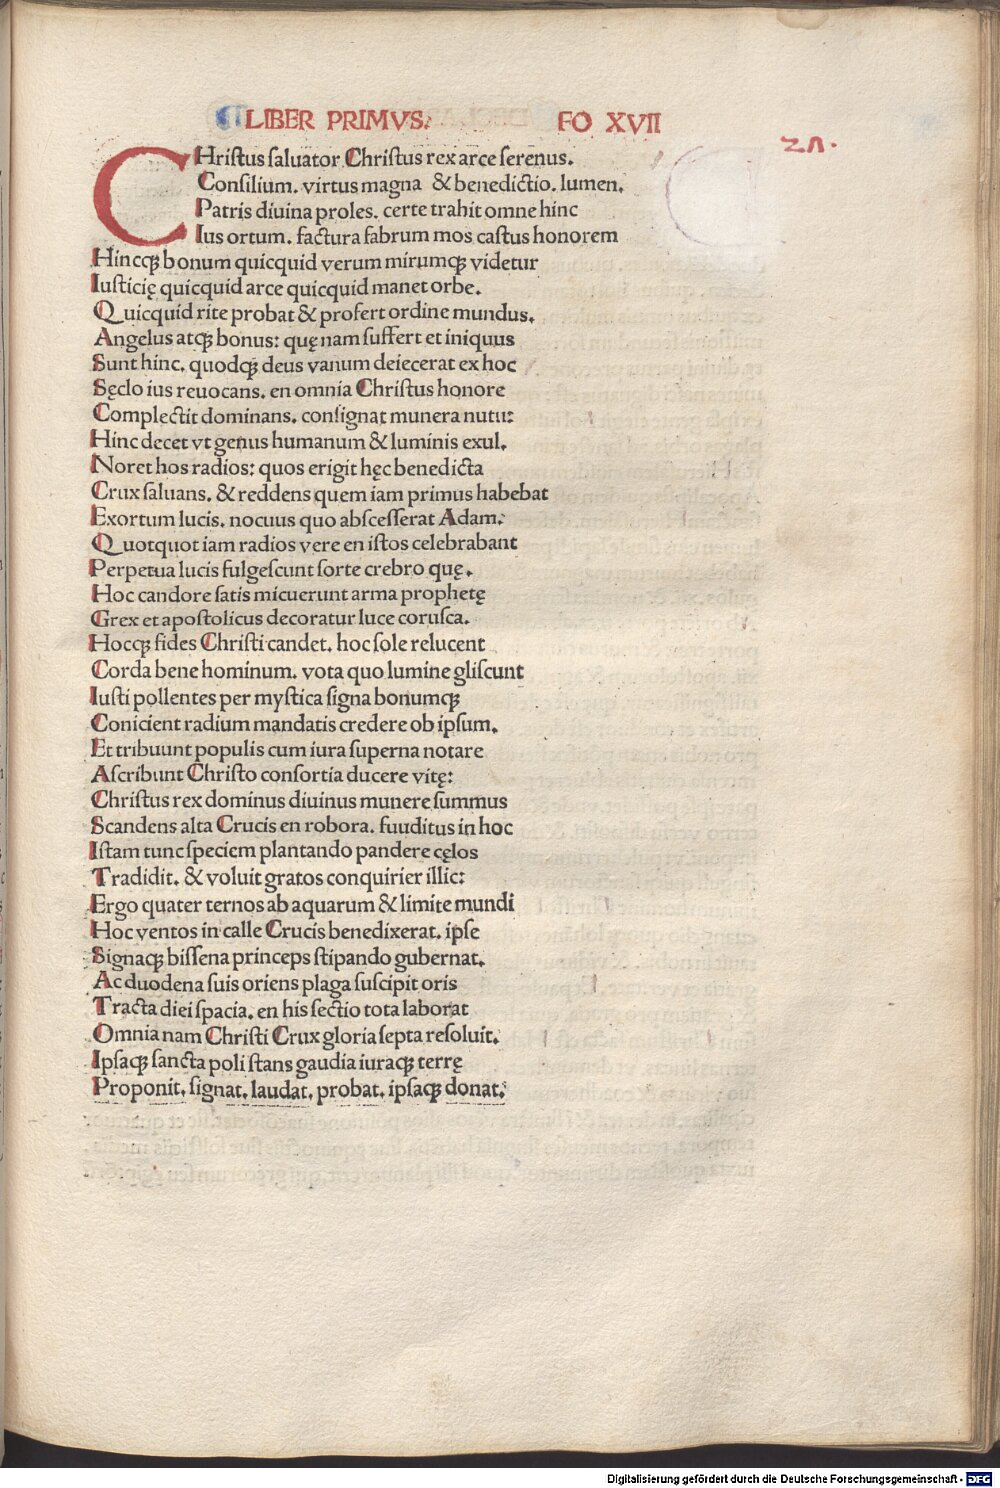 LIBER PRIMVS. FO XVII
zn.
CHriſtus ſaluator Chriſtus rex arce ſerenus.
Conſilium. virtus magna & benedictio. lumen.
Patris diuina proles. certe trahit omne hinc
Ius ortum. factura fabrum mos caſtus honorem
Hincq; bonum quicquid verum mirumq; videtur
Iuſticię quicquid arce quicquid manet orbe.
Quicquid rite probat & profert ordine mundus.
Angelus atq; bonus: quę nam ſuffert et iniquus
Sunt hinc. quodq; deus vanum deiecerat ex hoc
Sęclo ius reuocans. en omnia Chriſtus honore
Complectit dominans. conſignat munera nutu:
Hinc decet vt genus humanum & luminis exul.
Noret hos radios: quos erigit hęc benedicta
Crux ſaluans. & reddens quem iam primus habebat
Exortum lucis. nocuus quo abſceſſerat Adam:
Quotquot iam radios vere en iſtos celebrabant
Perpetua lucis fulgeſcunt ſorte crebro quę.
Hoc candore ſatis micuerunt arma prophetę
Grex et apoſtolicus decoratur luce coruſca.
Hocq; fides Chriſti candet. hoc ſole relucent
Corda bene hominum. vota quo lumine gliſcunt
Iuſti pollentes per myſtica ſigna bonumq;
Conicient radium mandatis credere ob ipſum.
Et tribuunt populis cum iura ſuperna notare
Aſcribunt Chriſto conſortia ducere vitę:
Chriſtus rex dominus diuinus munere ſummus
Scandens alta Crucis en robora. fuuditus in hoc
Iſtam tunc ſpeciem plantando pandere cęlos
Tradidit. & voluit gratos conquirier illic:
Ergo quater ternos ab aquarum & limite mundi
Hoc ventos in calle Crucis benedixerat. ipſe
Signaq; biſſena princeps ſtipando gubernat.
Ac duodena ſuis oriens plaga ſuſcipit oris
Tracta diei ſpacia. en his ſectio tota laborat
Omnia nam Chriſti Crux gloria ſepta reſoluit.
Ipſaq; ſancta poli ſtans gaudia iuraq; terrę
Proponit. ſignat. laudat. probat. ipſaq; donat:
Digitalisierung gefördert durch die Deutsche Forschungsgemeinschaft - DFG